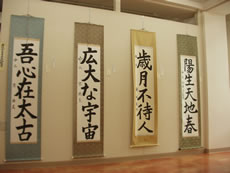 陽生天地春
歳月不待人
広大な宇宙
吾心在太古